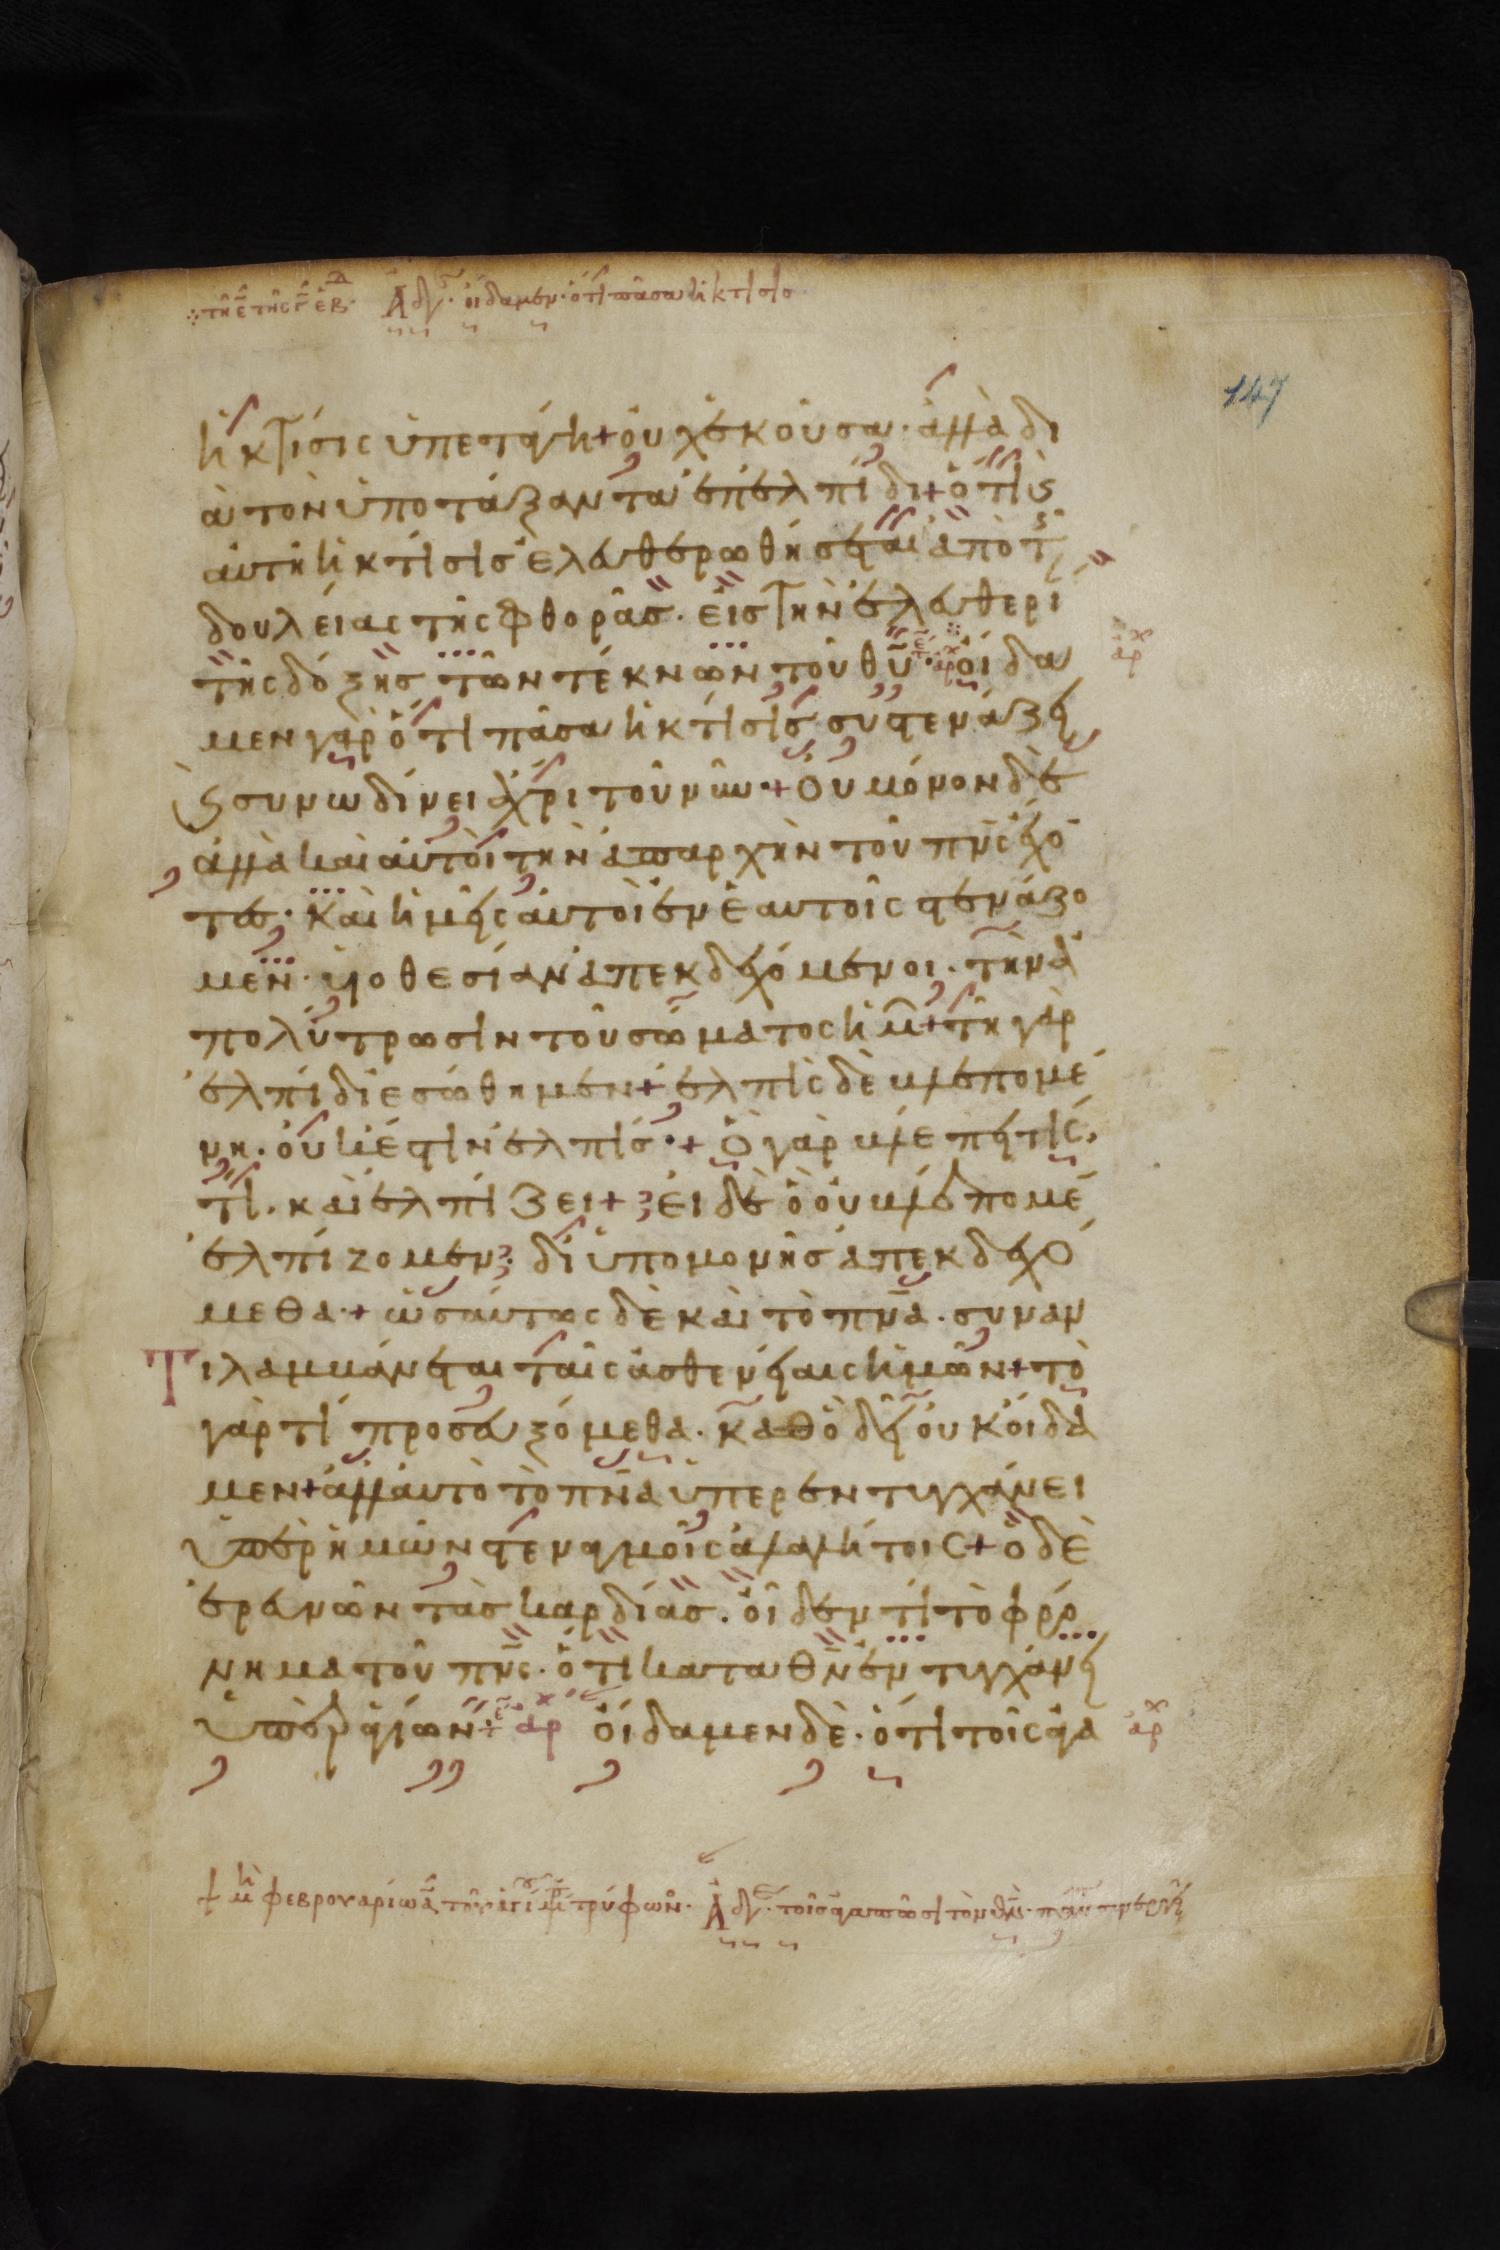 τῆ ε τῆς γ ἑβ Ἀδλ. οἴδαμεν ὅτι πᾶσα ἡ κτίσις
147
ἡ κτίσις ὑπετάγη + οὐχ ἑκοῦσα · ἀλλὰ δι
ὰ τὸν ὑποτάξαντα ἐπ ἐλπίδι + ὅτι κ
αὐτὴ ἡ κτίσις ἐλευθερωθήσεται ἀπὸ τ
δουλείας τῆς φθορᾶς · εἰς τὴν ἐλευθερί
τῆς δόξης τῶν τέκνων τοῦ θυ · οἴδα
ἀρχ
μεν γὰρ ὅτι πᾶσα ἡ κτίσις συστενάζει
κ συνωδίνει ἄχρι τοῦ νῦν + Οὐ μόνον δὲ
ἀλλὰ καὶ αὐτοὶ τὴν ἀπαρχὴν τοῦ πνς ἔχο
τες · καὶ ἡμεῖς αὐτοὶ ἐν ἑαυτοῖς στενάζο
μεν · υἱοθεσίαν ἀπεκδεχόμενοι · τὴν ἀ
πολύτρωσιν τοῦ σώματος ἡμ + τῆ γὰρ
ἐλπίδι ἐσώθημεν + ἐλπὶς δὲ βλεπομέ
νη · οὐκ ἔστιν ἐλπίς · + Ὁ γὰρ βλέπει τίς,
τί · καὶ ἐλπίζει + εἰ δὲ ὃ οὐ βλέπομε
ἐλπίζομεν · δι ὑπομονῆς ἀπεκδεχό
μεθα · + ὡσαύτως δὲ καὶ τὸ πνα · συναν
Τιλαμβάνεται ταῖς ἀσθενείαις ἡμῶν + τὸ
γὰρ τί προσευξόμεθα · καθὸ δεῖ οὐκ οἴδα
μεν + ἀλλ αὐτὸ τὸ πνα ὑπερεντυγχάνει
ὑπὲρ ἡμῶν στεναγμοῖς ἀλαλήτοις + ὁ δὲ
ἐρευνῶν τὰς καρδίας · οἶδεν τί τὸ φρό
νημα τοῦ πνς · ὅτι κατα θν ἐντυγχάνει
ὑπὲρ ἁγίων · ἀρχ οἴδαμεν δὲ · ὅτι τοῖς ἀγα
ἀρχ
μη φεβρουαρίω α, τοῦ ἁγί μρ τρύφων · Ἀδλ. τοῖς ἀγαπῶσι τὸν θν